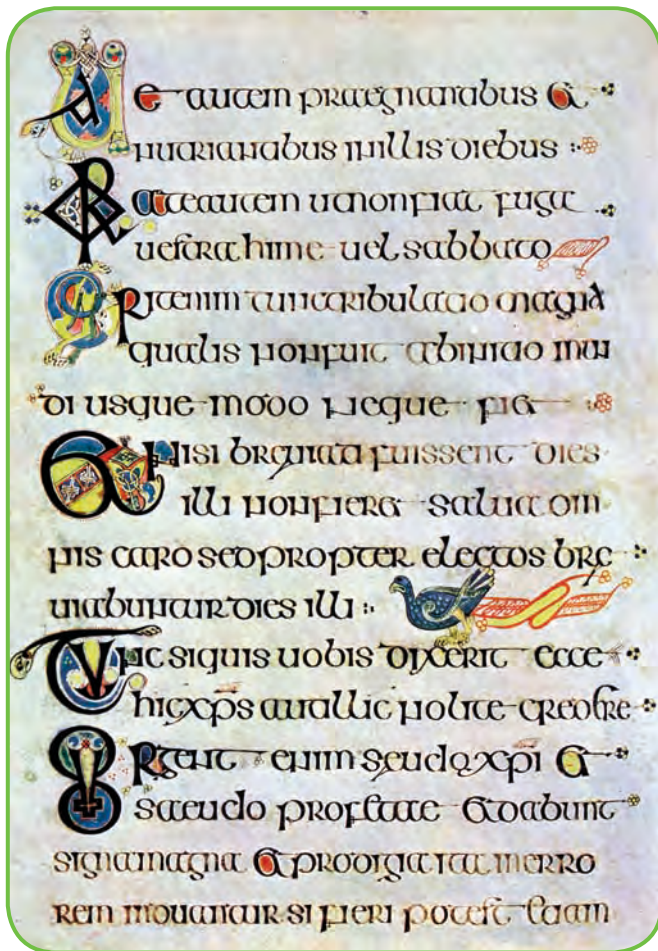 Uae autem praegnantibus et
nutriantibus inillis diebus
Orate autem utnonfiat fuga
uestra hime uel sabbato
Erit enim tunc tribulatio magna
qualis nonfuit abinitio mun
di usque modo neque fiet
Et nisi breuiati fuissent dies
illi nonfieret salua om
nis caro sed propter electos bre
uiabuntur dies illi
Tunc siquis uobis dixerit ecce
hic xps autillic nolite credere
Surgent enim seudo xpi et
saeudo profetae et dabunt
signa magna et prodigia ita inerro
rem inducantur si fieri potest etiam